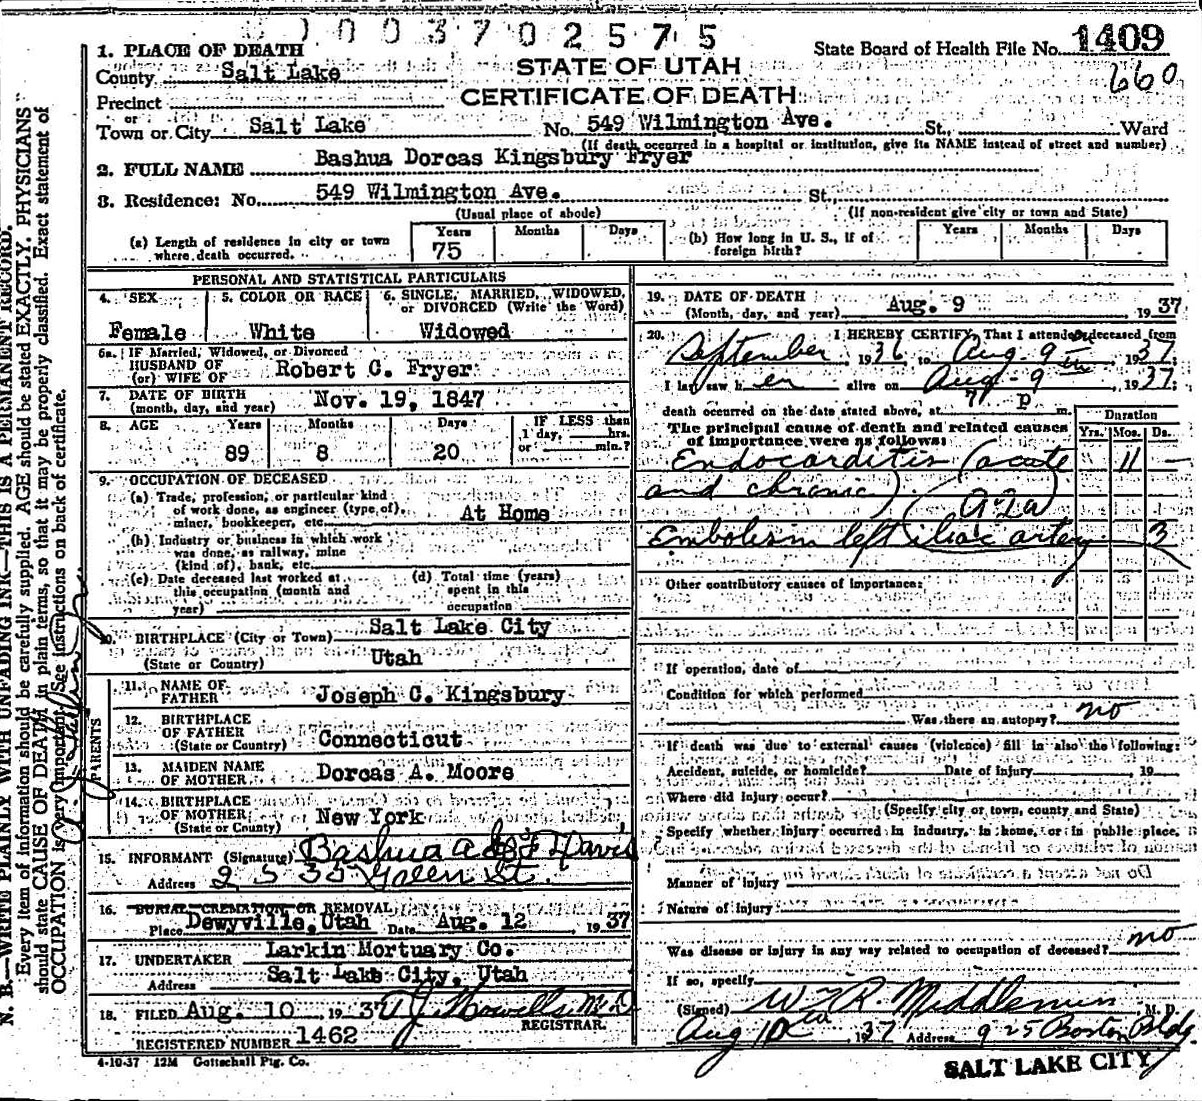 0 0 3 7 0 2 5 7 5
1. PLACE OF DEATH
State Board of Health File No. 1409
County Salt Lake
STATE OF UTAH
660
Precinct
CERTIFICATE OF DEATH
or
Town or City Salt Lake No. 549 Wilmington Ave. St., Ward
(If death occurred in a hospital or institution, give its NAME instead of street and number)
2. FULL NAME Bashua Dorcas Kingsbury Fryer
3. Residence: No. 549 Wilmington Ave. St.,
(Usual place of abode) (If non-resident give city or town and State)
(a) Length of residence in city or town where death occurred. Years 75 Months Days
(b) How long in U. S., if of foreign birth? Years Months Days
PERSONAL AND STATISTICAL PARTICULARS
4. SEX Female
5. COLOR OR RACE White
6. SINGLE, MARRIED, WIDOWED, or DIVORCED (Write the Word) Widowed
6a. IF Married, Widowed, or Divorced
HUSBAND OF
(or) WIFE OF Robert C. Fryer
7. DATE OF BIRTH
(month, day, and year) Nov. 19, 1847
8. AGE Years 89 Months 8 Days 20
IF LESS than 1 day, hrs. or min.?
9. OCCUPATION OF DECEASED
(a) Trade, profession, or particular kind
of work done, as engineer (type of),
miner, bookkeeper, etc. At Home
(b) Industry or business in which work
was done, as railway, mine
(kind of), bank, etc.
(c) Date deceased last worked at
this occupation (month and
year)
(d) Total time (years)
spent in this
occupation
10. BIRTHPLACE (City or Town) Salt Lake City
(State or Country) Utah
PARENTS
11. NAME OF
FATHER Joseph C. Kingsbury
12. BIRTHPLACE
OF FATHER
(State or Country) Connecticut
13. MAIDEN NAME
OF MOTHER Dorcas A. Moore
14. BIRTHPLACE
OF MOTHER
(State or Country) New York
15. INFORMANT (Signature) Bashua Davis
Address 2535 Green St.
16. BURIAL CREMATION OR REMOVAL
Place Dewyville, Utah Date Aug. 12 1937
17. UNDERTAKER Larkin Mortuary Co.
Address Salt Lake City, Utah
18. FILED Aug. 10 1937 T J Howells M.D.
REGISTRAR.
REGISTERED NUMBER 1462
4-10-37 12M Gottschall Ptg. Co.
19. DATE OF DEATH
(Month, day, and year) Aug. 9 1937
20. I HEREBY CERTIFY, That I attended deceased from
September 1936 to Aug. 9th 1937
I last saw h er alive on Aug - 9 1937;
death occurred on the date stated above, at 7 p m.
The principal cause of death and related causes
of importance were as follows:
Duration
Yrs. Mos. Ds.
Endocarditis (acute 11 -
and chronic)
Embolism left iliac artery 3
Other contributory causes of importance:
If operation, date of
Condition for which performed
Was there an autopsy? no
If death was due to external causes (violence) fill in also the following:
Accident, suicide, or homicide? Date of injury 19
Where did injury occur?
(Specify city or town, county and State)
Specify whether injury occurred in industry, in home, or in public place.
Manner of injury
Nature of injury
Was disease or injury in any way related to occupation of deceased? no
If so, specify
(Signed) W R. Middlemiss M. D.
Aug 10th 1937 Address 925 Boston Bldg
SALT LAKE CITY
N. B.—WRITE PLAINLY WITH UNFADING INK—THIS IS A PERMANENT RECORD.
Every item of information should be carefully supplied. AGE should be stated EXACTLY. PHYSICIANS
should state CAUSE OF DEATH in plain terms, so that it may be properly classified. Exact statement of
OCCUPATION is very important. See instructions on back of certificate.